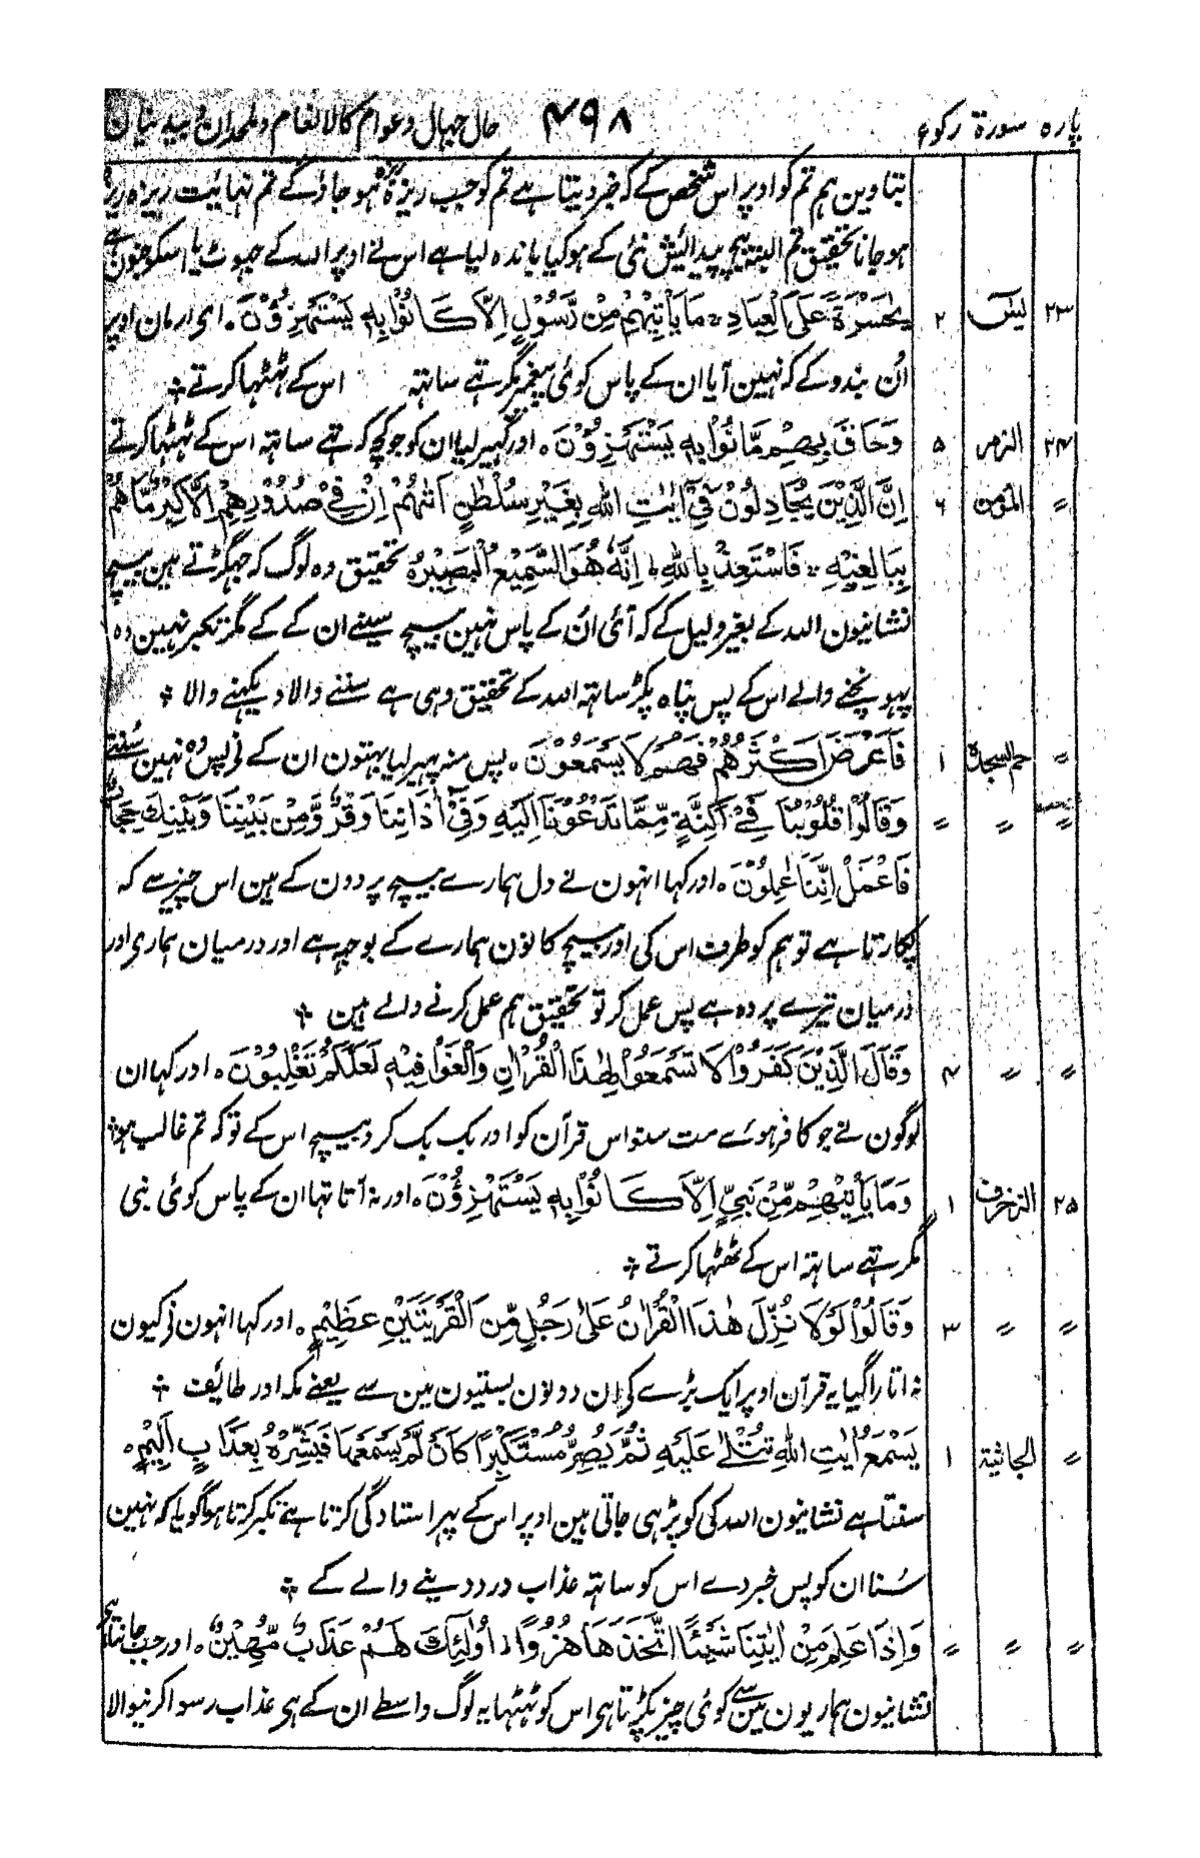 پارہ سورۃ رکوع ۴۹۸ حال جہال و عوام کالانعام و ملحدان بیدینان
بتاوین ہم تم کو اوپر اس شخص کے کہ خبر دیتا ہے تم کو جب ریزہ ہو جاؤ گے تم نہایت ریزہ ریزہ
ہو جانا تحقیق تم البتہ بیچ پیدائیش نئی کے ہو کیا باندہ لیا ہے اس نے اوپر اللہ کے جہوٹ یا اسکو جنون ہے
۲۳ یٰسٓ ۲ یٰحَسْرَةً عَلَى الْعِبَادِ مَا یَاْتِیْهِمْ مِّنْ رَّسُوْلٍ اِلَّا كَانُوْا بِهٖ یَسْتَهْزِءُوْنَ ۰ ای ارمان اوپر
اُن بندو کے کہ نہین آیا ان کے پاس کوئی پیغمبر مگر تہے ساتہ اس کے ٹہٹہا کرتے ÷
۲۴ الزمر ۵ وَحَاقَ بِهِمْ مَّا نُوْا بِهٖ یَسْتَهْزِءُوْنَ ۰ اور گہیر لیا ان کو جو کچہ کہ تہے ساتہ اس کے ٹہٹہا کرتے
〃 المؤمن ۶ اِنَّ الَّذِیْنَ یُجَادِلُوْنَ فِیْٓ اٰیٰتِ اللّٰهِ بِغَیْرِ سُلْطٰنٍ اَتٰىهُمْ اِنْ فِیْ صُدُوْرِهِمْ اِلَّا كِبْرٌ مَّا هُمْ
بِبَالِغِیْهِ فَاسْتَعِذْ بِاللّٰهِ اِنَّهٗ هُوَ السَّمِیْعُ الْبَصِیْرُ ۰ تحقیق وہ لوگ کہ جہگڑتے ہین بیچ
نشانیون اللہ کے بغیر دلیل کے کہ آئی اُن کے پاس نہین بیچ سینے ان کے کے مگر تکبر نہین وہ
پہونچنے والے اس کے پس پناہ پکڑ ساتہ اللہ کے تحقیق وہی ہے سننے والا دیکہنے والا ÷
〃 حم السجدۃ ۱ فَاَعْرَضَ اَكْثَرُهُمْ فَهُمْ لَا یَسْمَعُوْنَ ۰ پس منہ پہیر لیا بہتون ان کے نے پس وہ نہین سُنتے
〃 〃 〃 وَقَالُوْا قُلُوْبُنَا فِیْٓ اَكِنَّةٍ مِّمَّا تَدْعُوْنَا اِلَیْهِ وَفِیْٓ اٰذَانِنَا وَقْرٌ وَّمِنْ بَیْنِنَا وَبَیْنِكَ حِجَابٌ
فَاعْمَلْ اِنَّنَا عٰمِلُوْنَ ۰ اور کہا انہون نے دل ہمارے بیچ پردون کے ہین اس چیز سے کہ
پکارتا ہے تو ہم کو طرف اس کی اور بیچ کانون ہمارے کے بوجہ ہے اور درمیان ہماری اور
درمیان تیرے پردہ ہے پس عمل کر تو تحقیق ہم عمل کرنے والے ہین ÷
〃 〃 ۴ وَقَالَ الَّذِیْنَ كَفَرُوْا لَا تَسْمَعُوْا لِهٰذَا الْقُرْاٰنِ وَالْغَوْا فِیْهِ لَعَلَّكُمْ تَغْلِبُوْنَ ۰ اور کہا ان
لوگون نے جو کافر ہوئے مت سنو اس قرآن کو اور بک بک کرو بیچ اس کے تو کہ تم غالب ہو ÷
۲۵ الزخرف ۱ وَمَا یَاْتِیْهِمْ مِّنْ نَّبِیٍّ اِلَّا كَانُوْا بِهٖ یَسْتَهْزِءُوْنَ ۰ اور نہ آتا تہا ان کے پاس کوئی نبی
مگر تہے ساتہ اس کے ٹھٹہا کرتے ÷
〃 〃 ۳ وَقَالُوْا لَوْلَا نُزِّلَ هٰذَا الْقُرْاٰنُ عَلٰی رَجُلٍ مِّنَ الْقَرْیَتَیْنِ عَظِیْمٍ ۰ اور کہا انہون نے کیون
نہ اتارا گیا یہ قرآن اوپر ایک بڑے کے ان دونون بستیون مین سے یعنے مکہ اور طائف ÷
〃 الجاثیۃ ۱ یَسْمَعُ اٰیٰتِ اللّٰهِ تُتْلٰى عَلَیْهِ ثُمَّ یُصِرُّ مُسْتَكْبِرًا كَاَنْ لَّمْ یَسْمَعْهَا فَبَشِّرْهُ بِعَذَابٍ اَلِیْمٍ ۰
سنتا ہے نشانیون اللہ کی کو پڑہی جاتی ہین اوپر اس کے پہر استادگی کرتا ہے تکبر کرتا ہوا گویا کہ نہین
سُنا ان کو پس خبر دے اس کو ساتہ عذاب درد دینے والے کے ÷
〃 〃 〃 وَاِذَا عَلِمَ مِنْ اٰیٰتِنَا شَیْئًا اتَّخَذَهَا هُزُوًا اُولٰٓئِكَ لَهُمْ عَذَابٌ مُّهِیْنٌ ۰ اور جب جانتا ہے
نشانیون ہماریون مین سے کوئی چیز پکڑتا ہی اس کو ٹہٹہا یہ لوگ واسطے ان کے ہی عذاب رسوا کرنیوالا